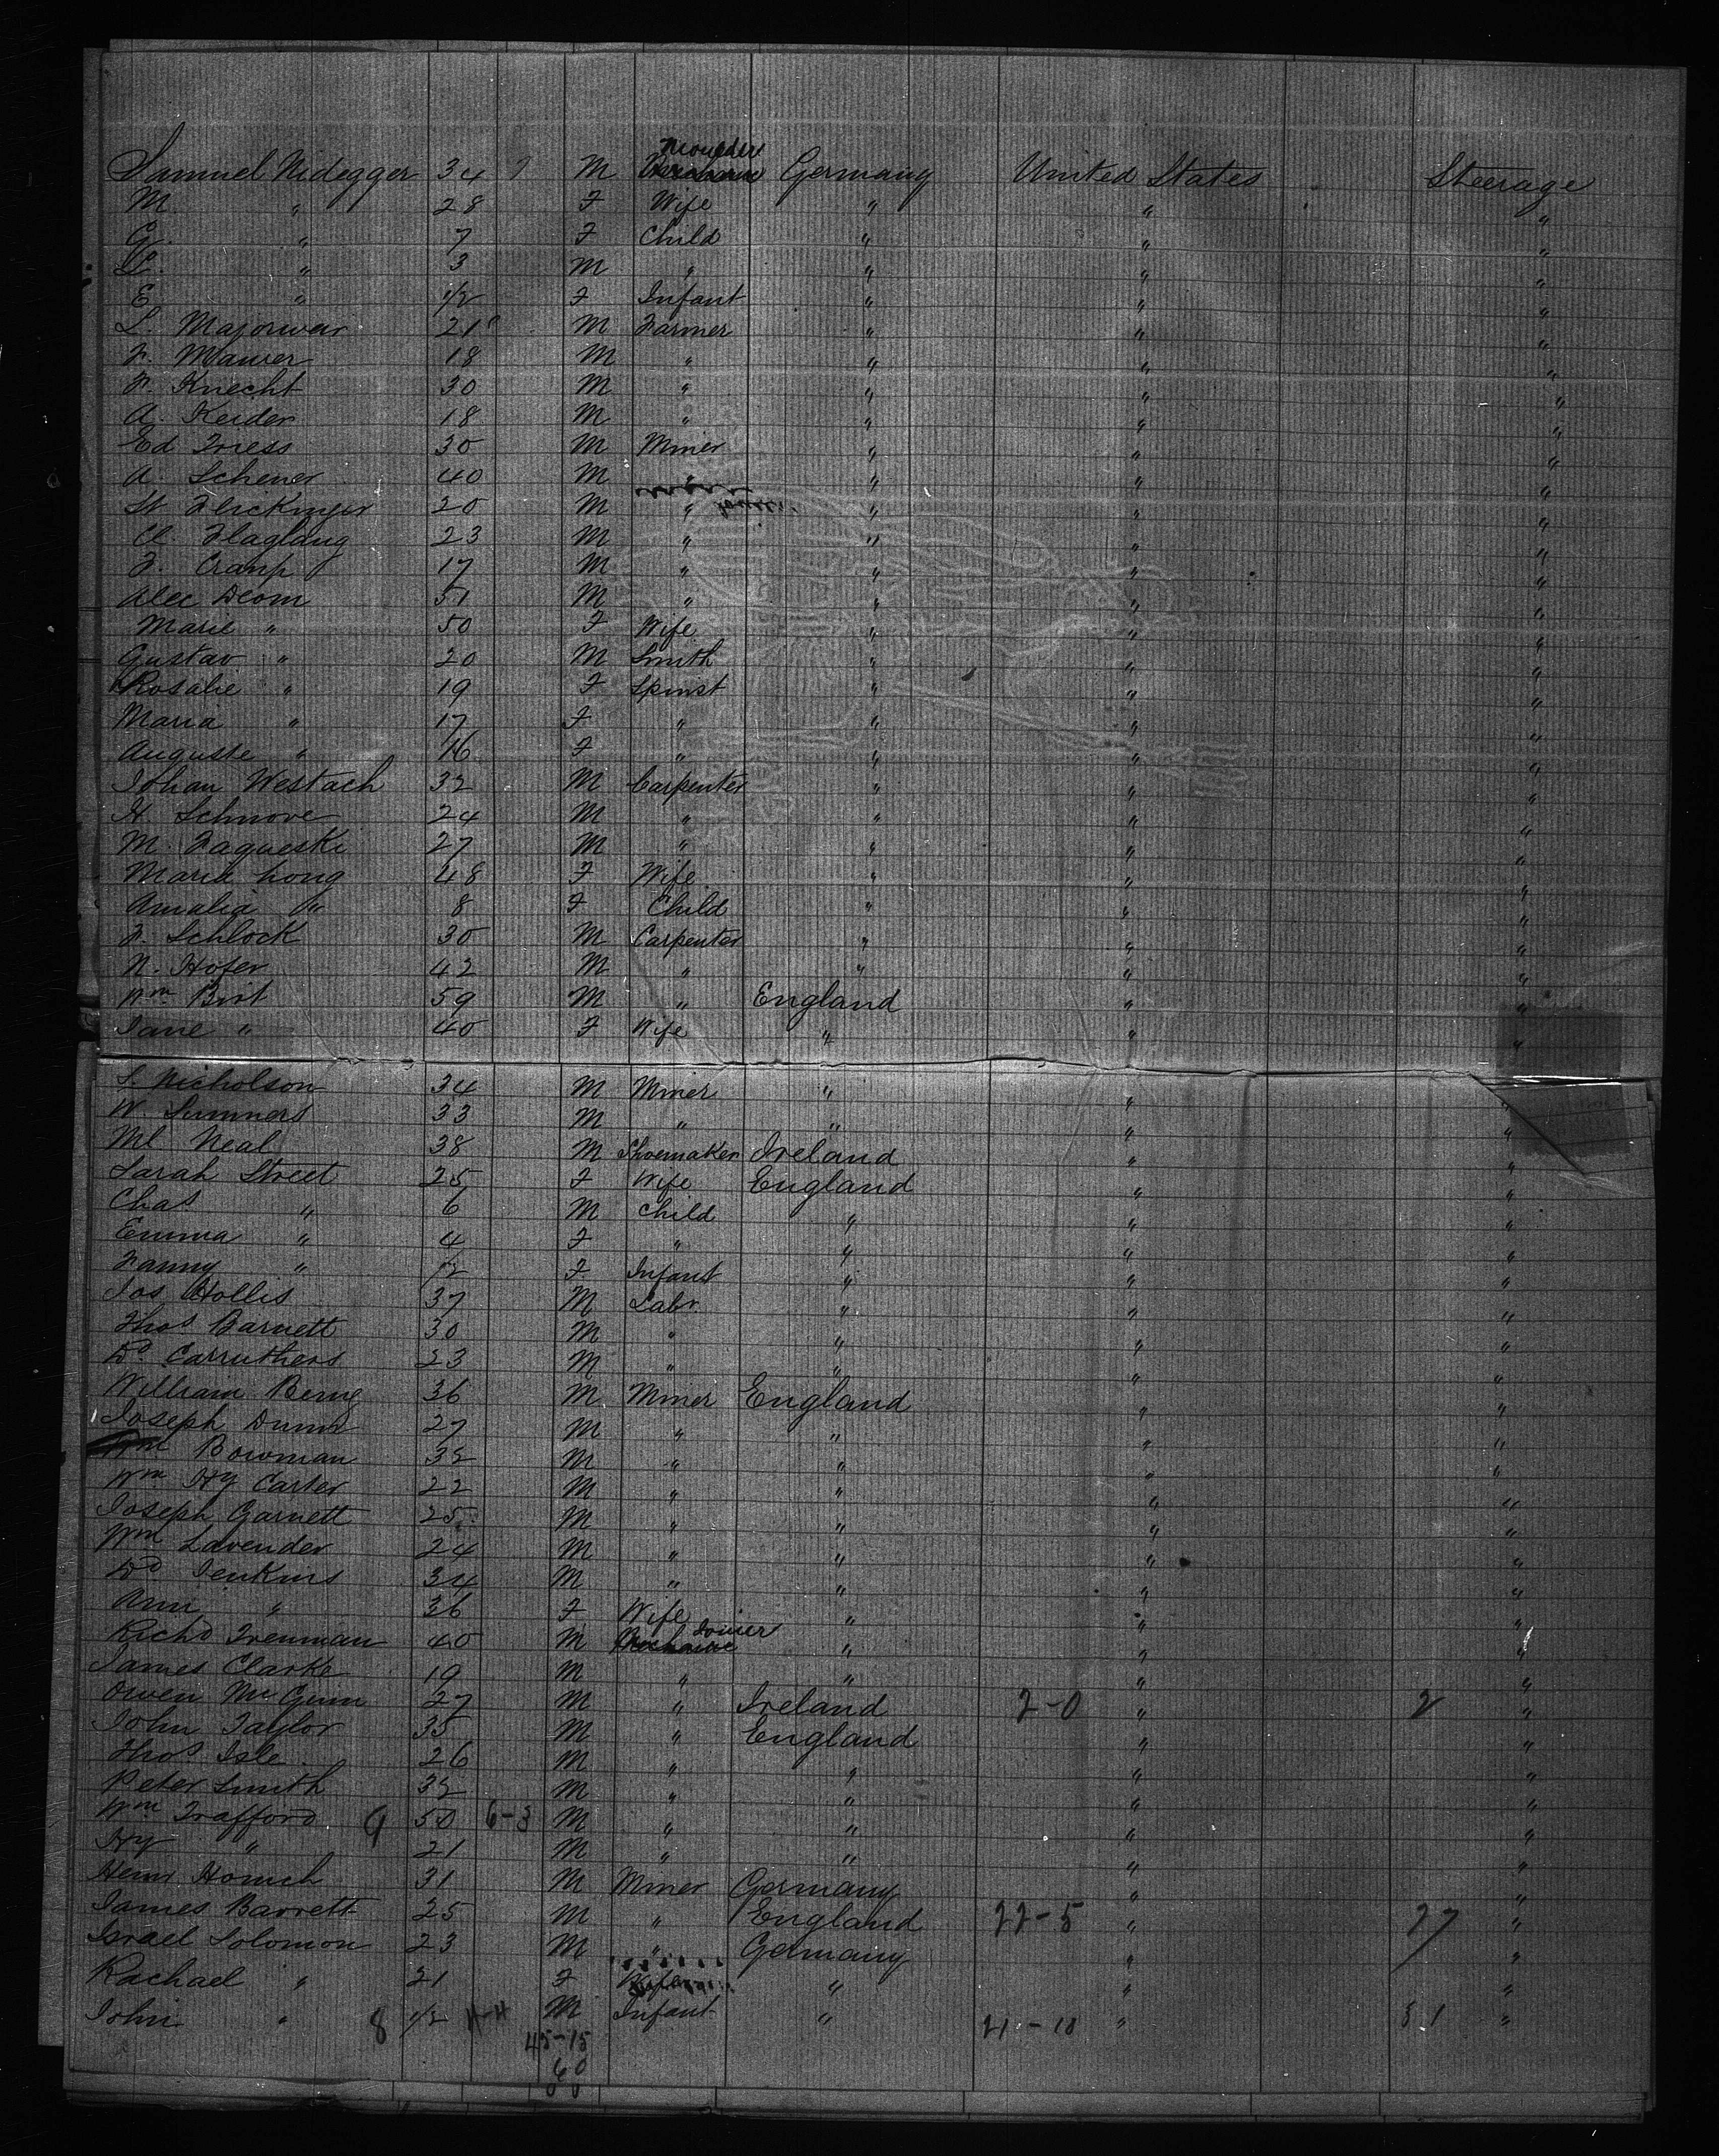 Samuel Nidegger 34 M Moulder Germany United States Steerage
M. " 28 F Wife " " "
G. " 7 F Child " " "
L. " 3 M " " " "
E " 1/2 F Infant " " "
L. Majorwar 21 M Farmer " " "
F. Mawer 18 M " " " "
F. Knecht 30 M " " " "
A. Keider 18 M " " " "
Ed Triess 30 M Miner " " "
A. Schener 40 M " " " "
St Flickinger 20 M " " " "
Cl. Flaglang 23 M " " " "
F. Cramp 17 M " " " "
Alec Deom 51 M " " " "
Marie " 50 F Wife " " "
Gustav " 20 M Smith " " "
Rosalie " 19 F Spinst " " "
Maria " 17 F " " " "
Auguste " 16 F " " " "
Johan Westach 32 M Carpenter " " "
H Schnove 24 M " " " "
M. Faqueski 27 M " " " "
Maria Long 48 F Wife " " "
Amalia " 8 F Child " " "
F. Schlock 30 M Carpenter " " "
N. Hofer 42 M " " " "
Wm Birt 59 M " England " "
Jane " 40 F Wife " " "
S. Nicholson 34 M Miner " " "
W. Sumners 33 M " " " "
Ml Neal 38 M Shoemaker Ireland " "
Sarah Street 25 F Wife England " "
Chas " 6 M Child " " "
Emma " 4 F " " " "
Fanny " 1/2 F Infant " " "
Jos Hollis 37 M Labr. " " "
Thos Barnett 30 M " " " "
Dd. Carruthers 23 M " " " "
William Berne 36 M Miner England " "
Joseph Dunn 27 M " " " "
Wm Bowman 32 M " " " "
Wm Hy Carter 22 M " " " "
Joseph Garnett 25 M " " " "
Wm Lavender 24 M " " " "
Dd Jenkins 34 M " " " "
Ann " 36 F Wife " " "
Richd Trenman 40 M Joiner " " "
James Clarke 19 M " " " "
Owen McGuin 27 M " Ireland 2-0 " 2 "
John Taylor 35 M " England " "
Thos Isle 26 M " " " "
Peter Smith 32 M " " " "
Wm Trafford 9 50 6-3 M " " " "
Hy " 21 M " " " "
Henr Homch 31 M Miner Germany " "
James Barrett 25 M " England 22-5 " 27 "
Israel Solomon 23 M " Germany " "
Rachael " 21 F Wife " " "
John " 8 1/2 4-4 M Infant " 21-10 " 31 "
45-15
60